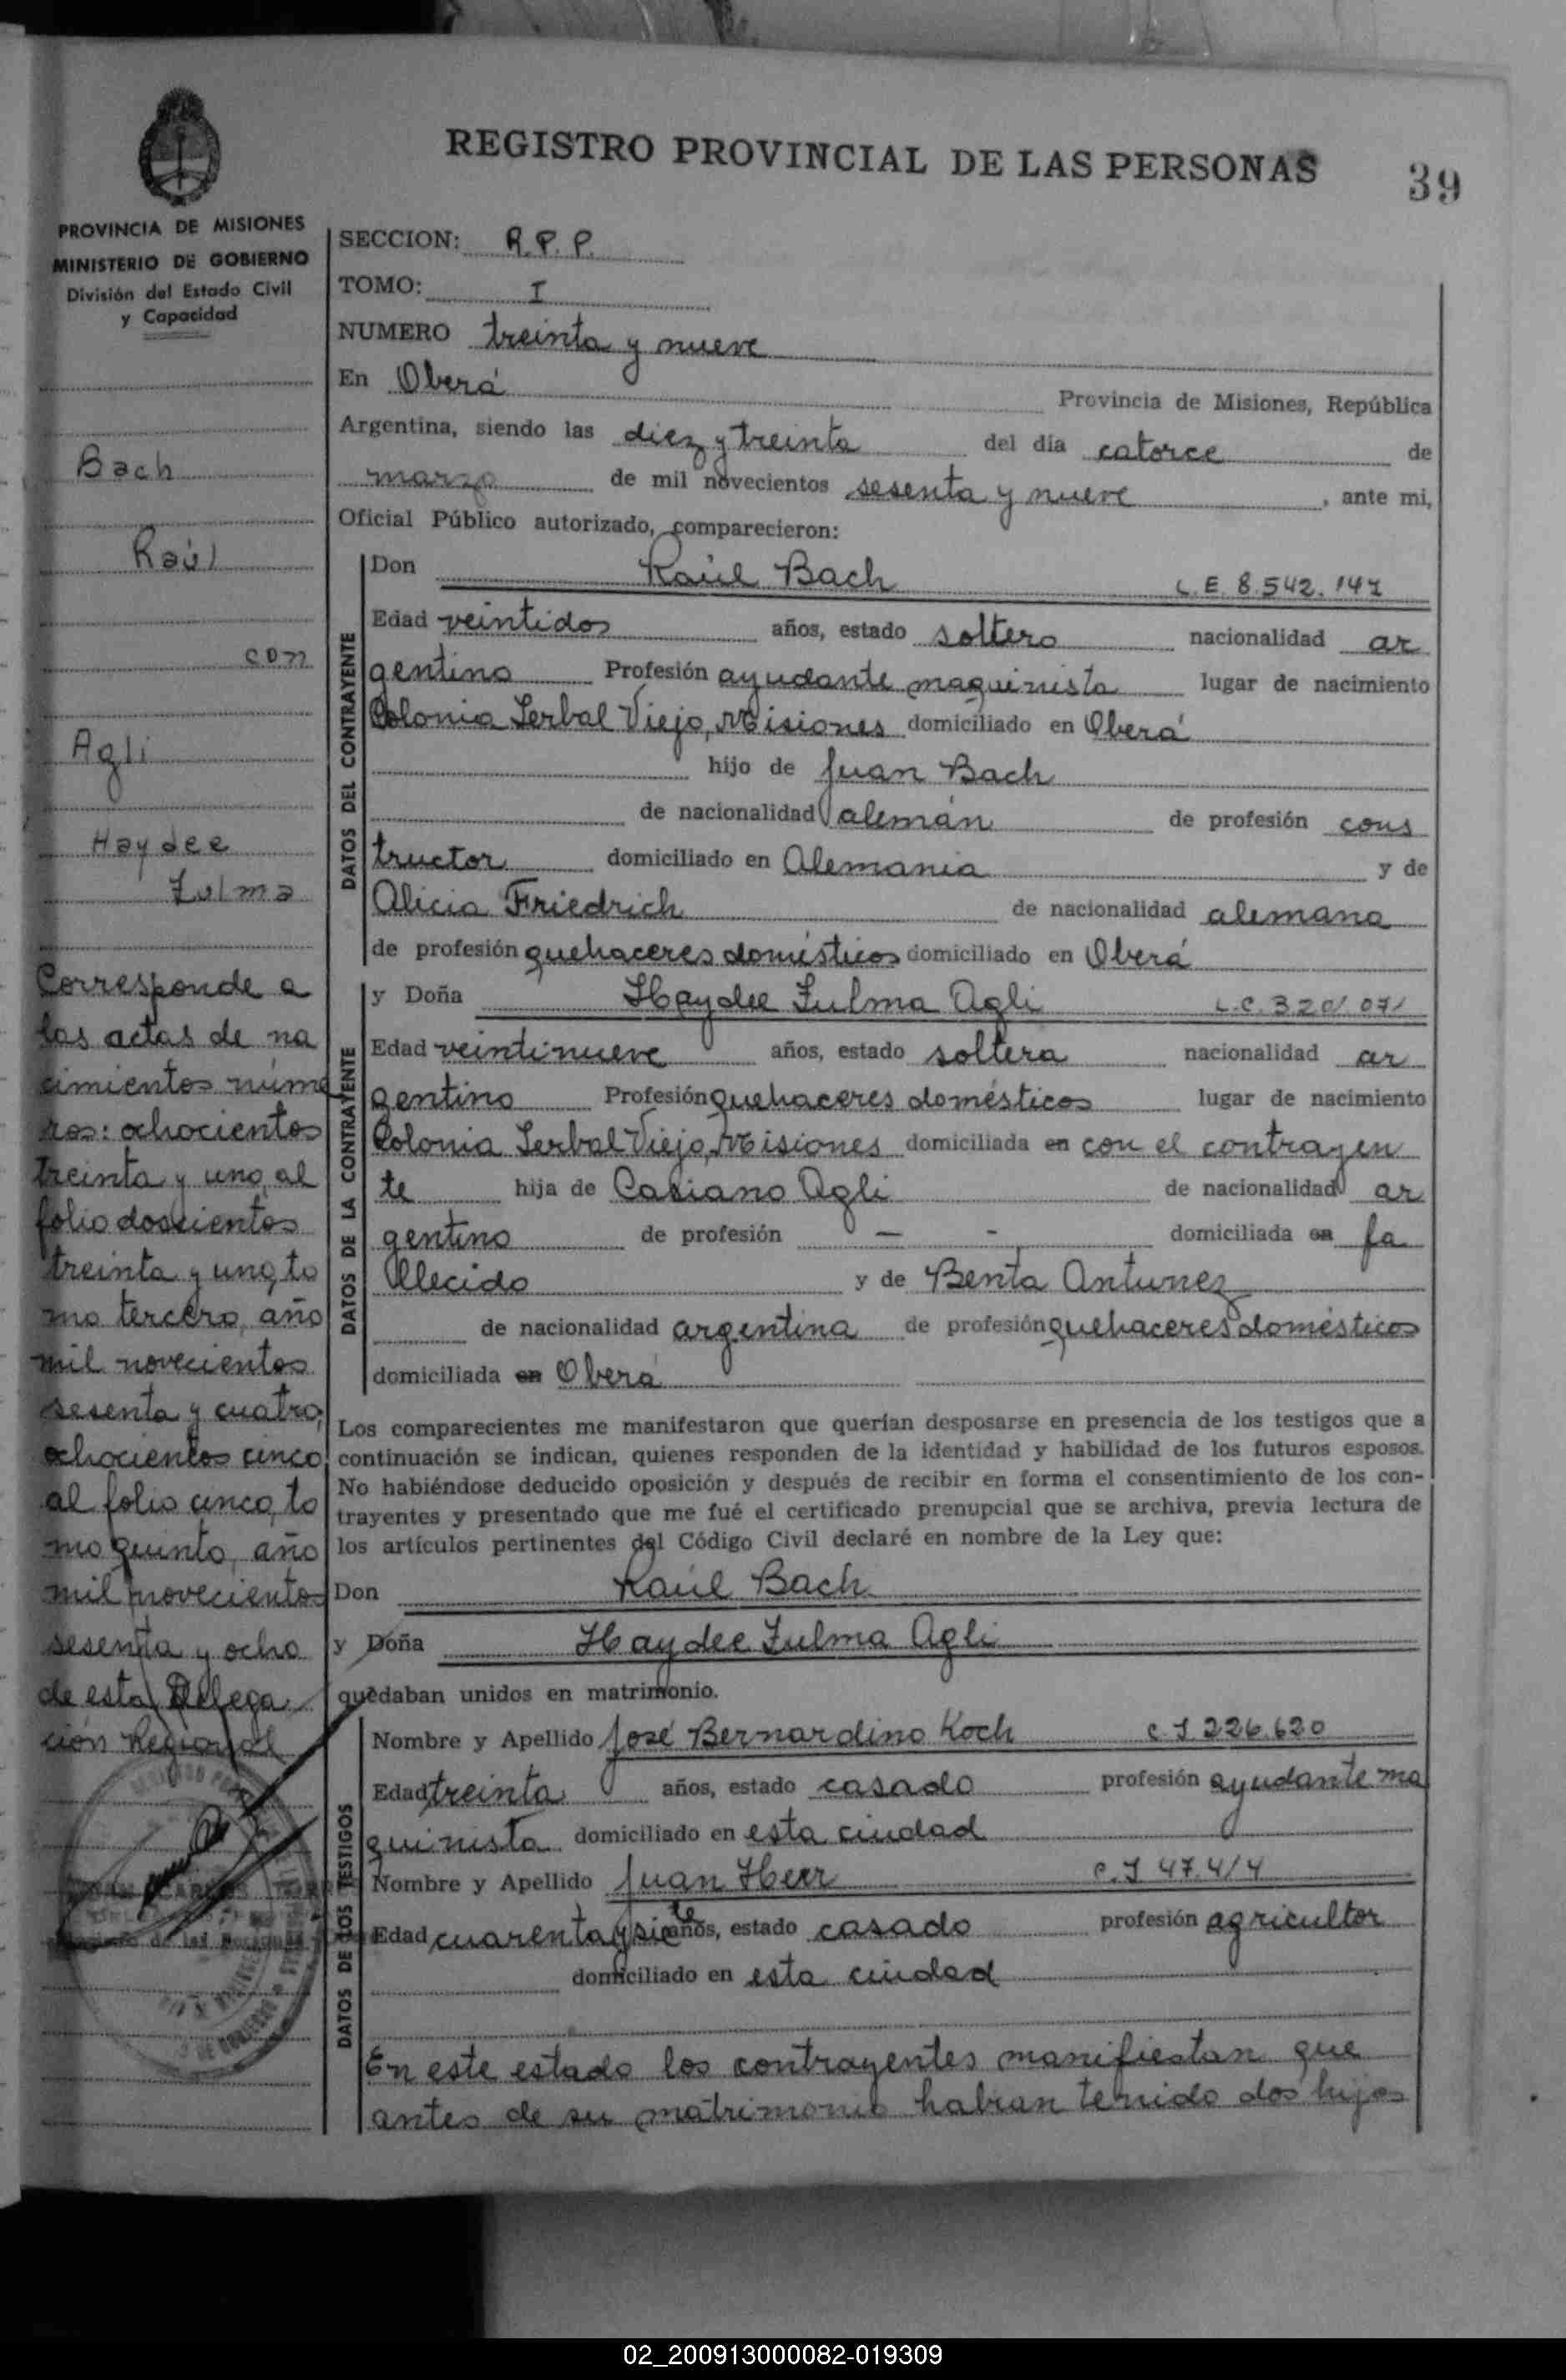 REGISTRO PROVINCIAL DE LAS PERSONAS
39
PROVINCIA DE MISIONES
MINISTERIO DE GOBIERNO
División del Estado Civil
y Capacidad
Bach
Raúl
con
Agli
Haydee
Zulma
Corresponde a
las actas de na
cimientos núme
ros: ochocientos
treinta y uno, al
folio doscientos
treinta y uno, to
mo tercero, año
mil novecientos
sesenta y cuatro,
ochocientos cinco
al folio cinco, to
mo quinto, año
mil novecientos
sesenta y ocho
de esta Delega
ción Regional
SECCION: R.P.P.
TOMO: I
NUMERO treinta y nueve
En Oberá Provincia de Misiones, República
Argentina, siendo las diez y treinta del día catorce de
marzo de mil novecientos sesenta y nueve, ante mi,
Oficial Público autorizado, comparecieron:
DATOS DEL CONTRAYENTE
Don Raúl Bach L.E. 8.542.147
Edad veintidos años, estado soltero nacionalidad ar
gentino Profesión ayudante maquinista lugar de nacimiento
Colonia Yerbal Viejo, Misiones domiciliado en Oberá
hijo de Juan Bach
de nacionalidad alemán de profesión cons
tructor domiciliado en Alemania y de
Alicia Friedrich de nacionalidad alemana
de profesión quehaceres domésticos domiciliado en Oberá
DATOS DE LA CONTRAYENTE
y Doña Haydee Zulma Agli L.C.
Edad veintinueve años, estado soltera nacionalidad ar
gentina Profesión quehaceres domésticos lugar de nacimiento
Colonia Yerbal Viejo, Misiones domiciliada en con el contrayen
te hija de Casiano Agli de nacionalidad ar
gentino de profesión — - domiciliada en fa
llecido y de Benta Antunez
de nacionalidad argentina de profesión quehaceres domésticos
domiciliada en Oberá
Los comparecientes me manifestaron que querían desposarse en presencia de los testigos que a
continuación se indican, quienes responden de la identidad y habilidad de los futuros esposos.
No habiéndose deducido oposición y después de recibir en forma el consentimiento de los con-
trayentes y presentado que me fué el certificado prenupcial que se archiva, previa lectura de
los artículos pertinentes del Código Civil declaré en nombre de la Ley que:
Don Raúl Bach
y Doña Haydee Zulma Agli
quedaban unidos en matrimonio.
DATOS DE LOS TESTIGOS
Nombre y Apellido José Bernardino Koch C.I 226.620
Edad treinta años, estado casado profesión ayudante ma
quinista domiciliado en esta ciudad
Nombre y Apellido Juan Herr C.I 47.414
Edad cuarenta y siete años, estado casado profesión agricultor
domiciliado en esta ciudad
En este estado los contrayentes manifiestan que
antes de su matrimonio habian tenido dos hijos
02_200913000082-019309